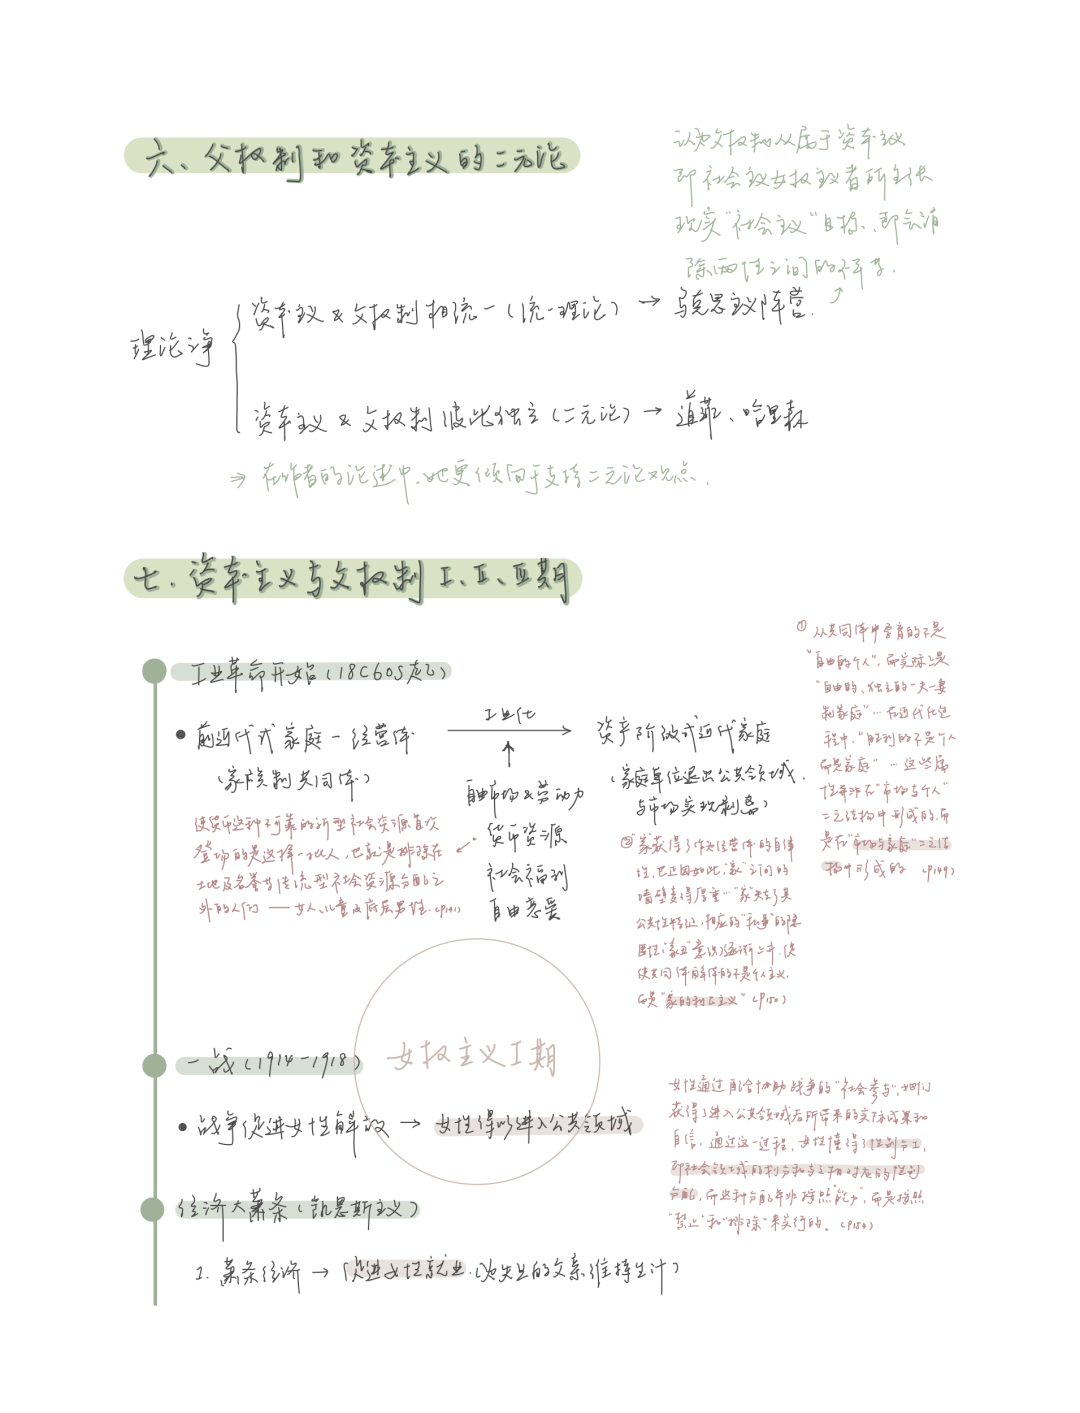 六、父权制和资本主义的二元论
认为父权制从属于资本主义
即社会主义女权主义者所主张
现实“社会主义”目标，即会消
除两性之间的不平等.
理论之争
资本主义&父权制相统一(统一理论) → 马克思主义阵营.
资本主义&父权制彼此独立(二元论) → 道菲、哈里森
⇒ 在作者的论述中,她更倾向于支持二元论观点.
七.资本主义与父权制Ⅰ、Ⅱ、Ⅲ期
工业革命开始(18C60S起)
• 前近代式家庭-经营体
(家族制共同体)
工业化
自由市场&劳动力
货币资源
社会福利
自由恋爱
资产阶级式近代家庭
(家庭单位退出公共领域.
与市场实现割离)
使货币这种不可靠的新型社会资源首次
登场的是这样一批人,也就是排除在
土地及名誉等传统型社会资源分配之
外的人们——女人、儿童及底层男性.(P141)
① 从共同体中孕育的不是
“自由的个人”,而实际上是
“自由的、独立的一夫一妻
制家庭”…在近代化过
程中,“胜利的不是个人
而是家庭”…这些属
性并非在“市场与个人”
二元结构中形成的,而
是在“市场与家庭”二元结
构中形成的 (P149)
② “家获得了作为经营体的自律
性,也正因如此,“家”之间的
墙壁变得厚重…“家”失去了其
公共性特征,相应的“私事”的隐
匿性,“家丑”意识逐渐上升.促
使共同体解体的不是个人主义,
而是“家的利己主义” (P150)
女权主义Ⅰ期
一战(1914-1918)
• 战争促进女性解放 → 女性得以进入公共领域
女性通过配合协助战争的“社会参与”,她们
获得了进入公共领域后所带来的实际成果和
自信, 通过这一过程, 女性懂得了性别分工,
即社会领域的划分和与之相对应的性别
分配,而这种分配并非按照“能力”,而是按照
“禁止”和“排除”来实行的。(P154)
经济大萧条(凯恩斯主义)
1. 萧条经济 → 促进女性就业.(为失业的父亲维持生计)